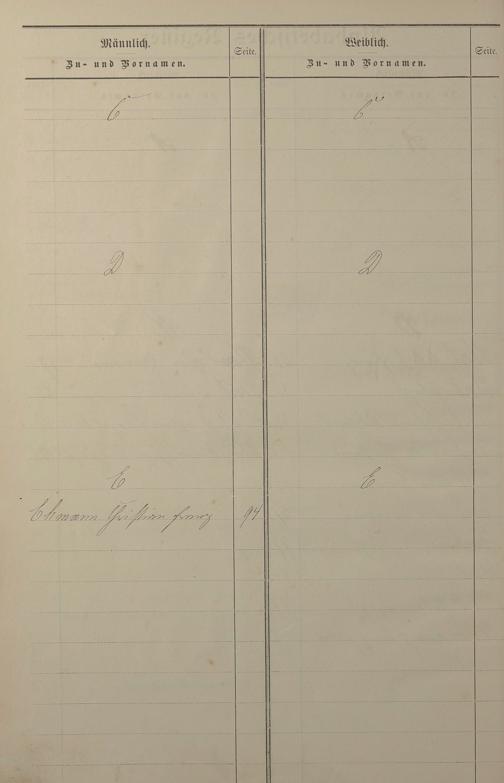 Männlich.
Zu- und Vornamen.
Seite.
Weiblich.
Zu- und Vornamen.
Seite.
C
C
D
D
E
E
Ehmann Christian Franz 94